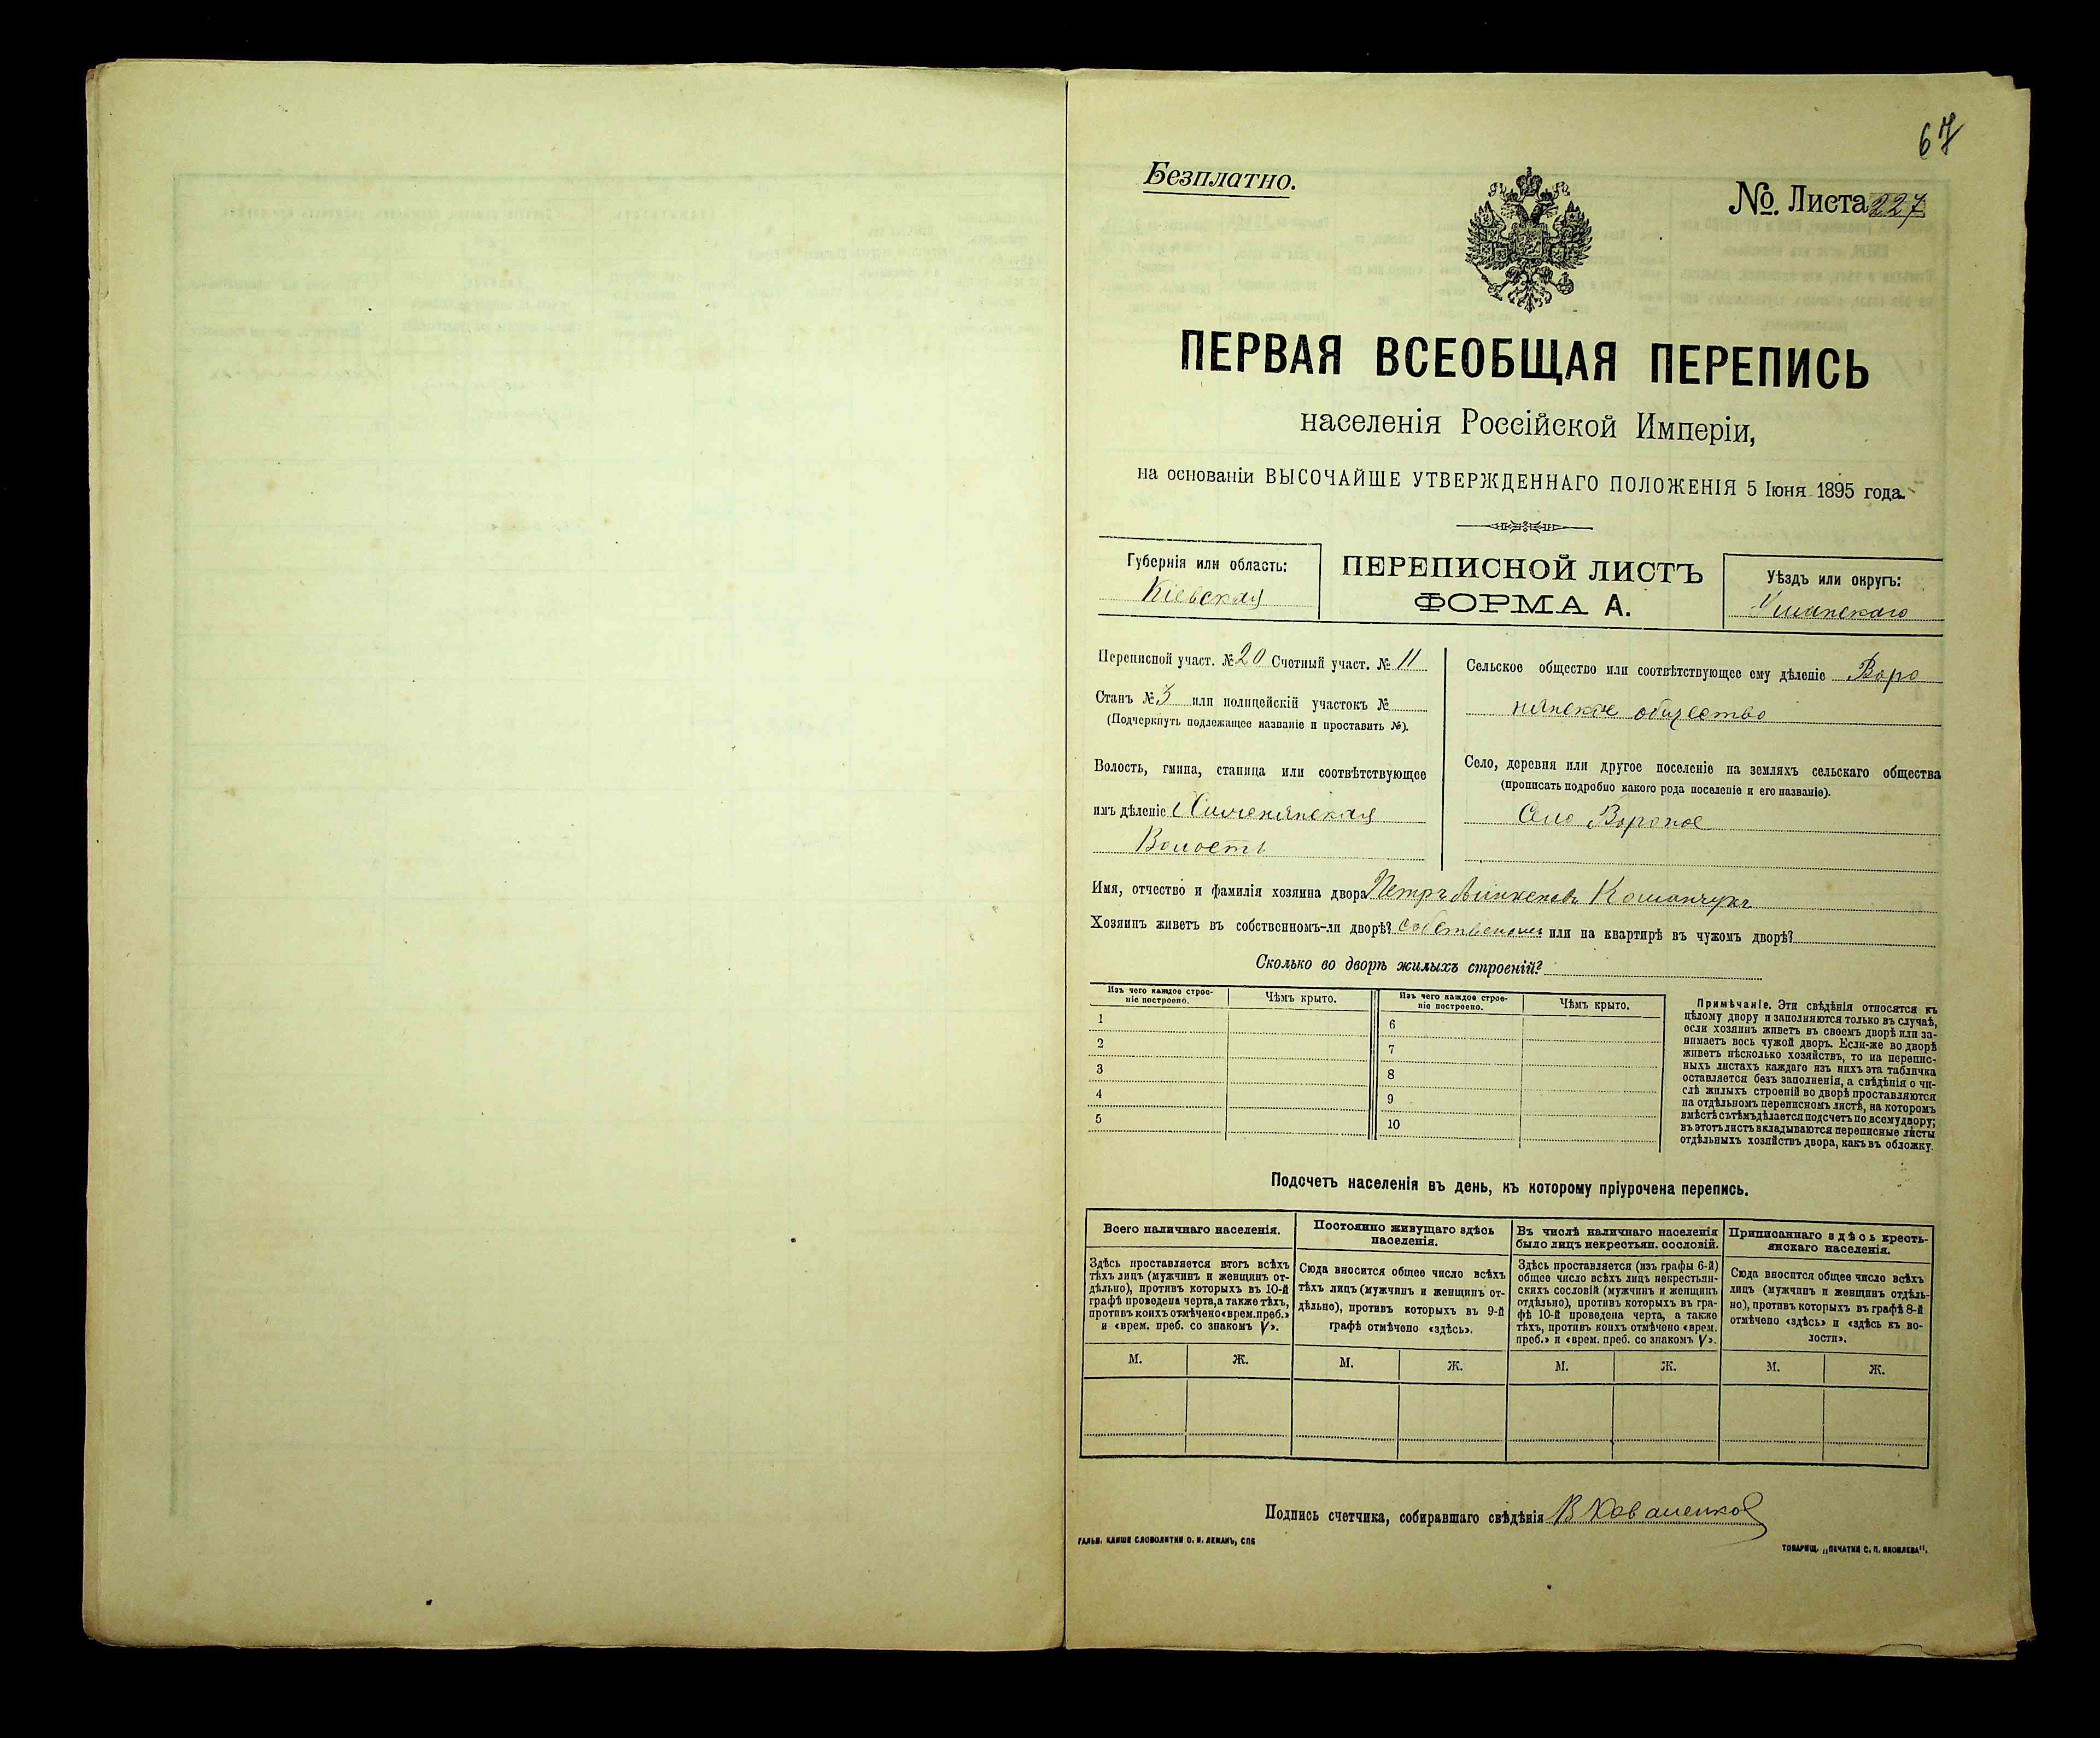 67
Безплатно.
№. Листа 227
ПЕРВАЯ ВСЕОБЩАЯ ПЕРЕПИСЬ
населенія Россійской Имперіи,
на основаніи ВЫСОЧАЙШЕ УТВЕРЖДЕННАГО ПОЛОЖЕНІЯ 5 Іюня 1895 года.
Губернія или область:
Кіевская
ПЕРЕПИСНОЙ ЛИСТЪ
ФОРМА А.
Уѣздъ или округъ:
Уманскаго
Переписной участ. № 20 Счетный участ. № 11
Станъ № 3 или полицейскій участокъ №
(Подчеркнуть подлежащее названіе и проставить №).
Волость, гмина, станица или соотвѣтствующее
имъ дѣленіе
Волость
Сельское общество или соотвѣтствующее ему дѣленіе Воро
нянское общество
Село, деревня или другое поселеніе на земляхъ сельскаго общества
(прописать подробно какого рода поселеніе и его названіе).
Село Вороное
Имя, отчество и фамилія хозяина двора Петръ
Хозяинъ живетъ въ собственномъ-ли дворѣ? или на квартирѣ въ чужомъ дворѣ?
Сколько во дворѣ жилыхъ строеній?
Изъ чего каждое строе-
ніе построено.
Чѣмъ крыто.
Изъ чего каждое строе-
ніе построено.
Чѣмъ крыто.
1
2
3
4
5
6
7
8
9
10
Примѣчаніе. Эти свѣдѣнія относятся къ
цѣлому двору и заполняются только въ случаѣ,
если хозяинъ живетъ въ своемъ дворѣ или за-
нимаетъ весь чужой дворъ. Если-же во дворѣ
живетъ нѣсколько хозяйствъ, то на перепис-
ныхъ листахъ каждаго изъ нихъ эта табличка
оставляется безъ заполненія, а свѣдѣнія о чи-
слѣ жилыхъ строеній во дворѣ проставляются
на отдѣльномъ переписномъ листѣ, на которомъ
вмѣстѣ съ тѣмъ дѣлается подсчетъ по всему двору;
въ этотъ листъ вкладываются переписные листы
отдѣльныхъ хозяйствъ двора, какъ въ обложку.
Подсчетъ населенія въ день, къ которому пріурочена перепись.
Всего наличнаго населенія.
Здѣсь проставляется итогъ всѣхъ
тѣхъ лицъ (мужчинъ и женщинъ от-
дѣльно), противъ которыхъ въ 10-й
графѣ проведена черта, а также тѣхъ,
противъ коихъ отмѣчено «врем. преб.»
и «врем. преб. со знакомъ V».
М. Ж.
Постоянно живущаго здѣсь
населенія.
Сюда вносится общее число всѣхъ
тѣхъ лицъ (мужчинъ и женщинъ от-
дѣльно), противъ которыхъ въ 9-й
графѣ отмѣчено «здѣсь».
М. Ж.
Въ числѣ наличнаго населенія
было лицъ некрестьян. сословій.
Здѣсь проставляется (изъ графы 6-й)
общее число всѣхъ лицъ некрестьян-
скихъ сословій (мужчинъ и женщинъ
отдѣльно), противъ которыхъ въ гра-
фѣ 10-й проведена черта, а также
тѣхъ, противъ коихъ отмѣчено «врем.
преб.» и «врем. преб. со знакомъ V».
М. Ж.
Приписаннаго здѣсь кресть-
янскаго населенія.
Сюда вносится общее число всѣхъ
лицъ (мужчинъ и женщинъ отдѣль-
но), противъ которыхъ въ графѣ 8-й
отмѣчено «здѣсь» и «здѣсь къ во-
лости».
М. Ж.
Подпись счетчика, собиравшаго свѣдѣнія
ГАЛЬВ. КЛИШЕ СЛОВОЛИТНИ О. И. ЛЕМАНЪ, СПБ
ТОВАРИЩ. „ПЕЧАТНЯ С. П. ЯКОВЛЕВА".